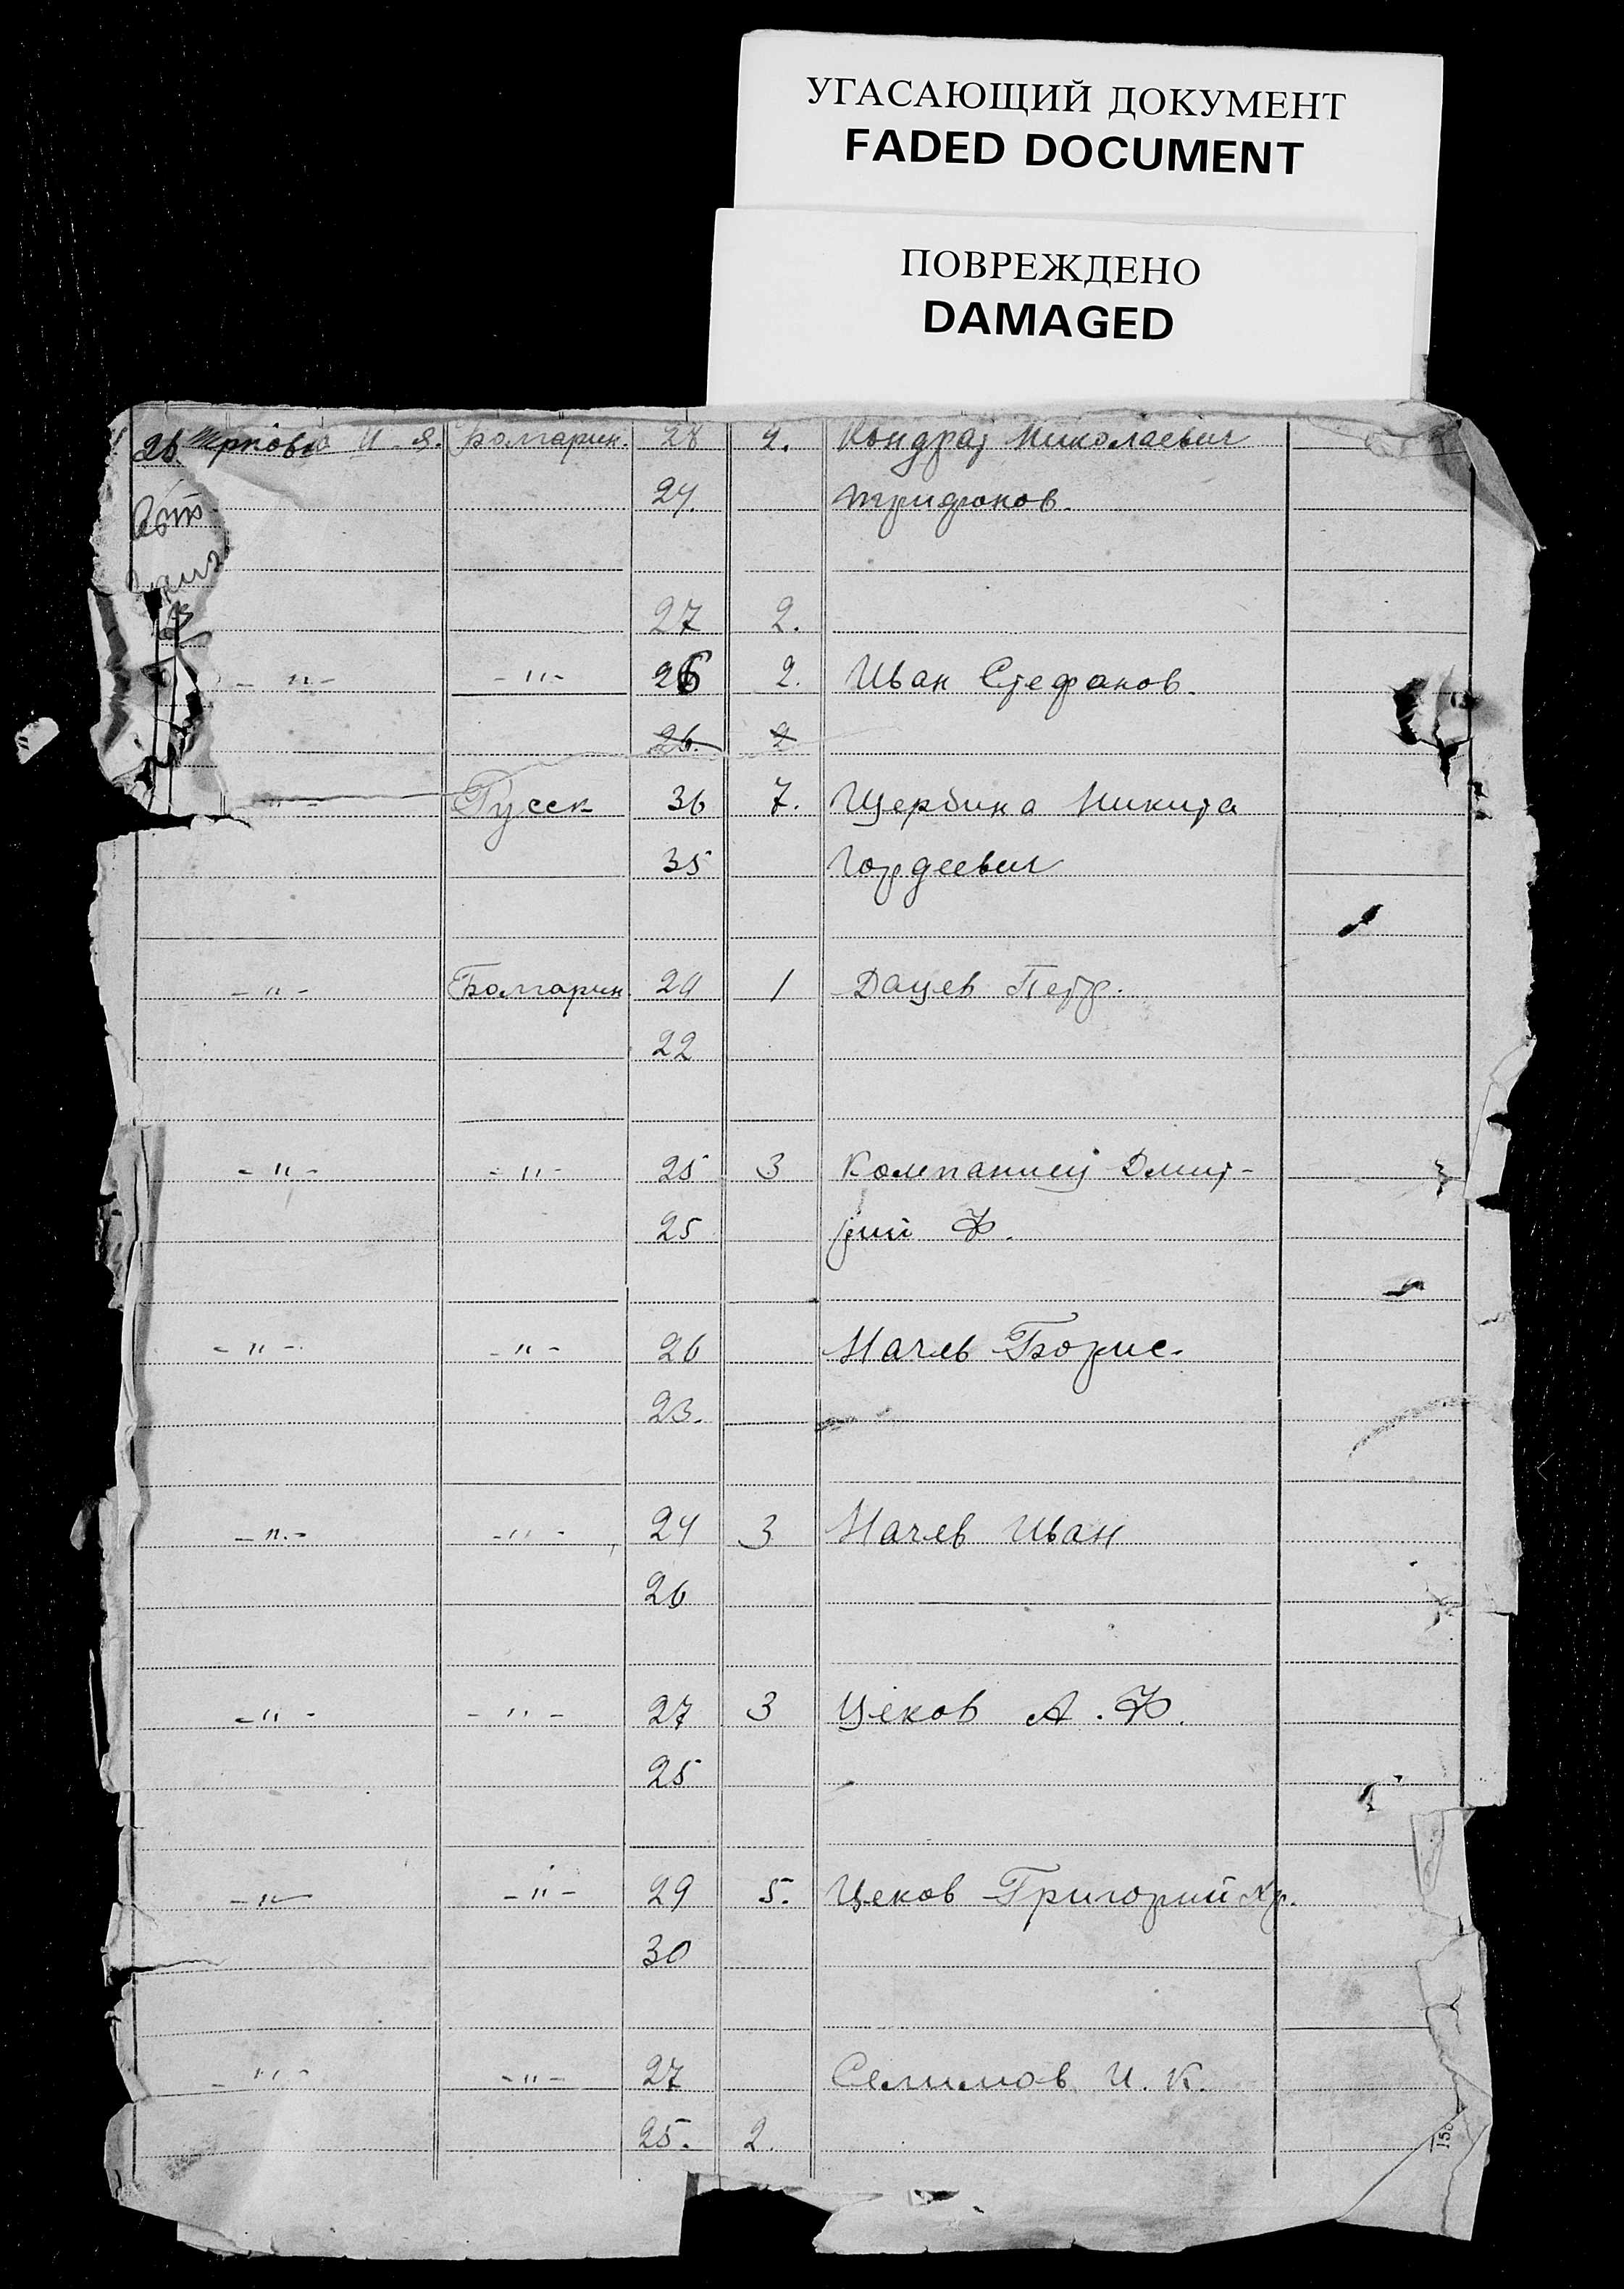 УГАСАЮЩИЙ ДОКУМЕНТ
FADED DOCUMENT
ПОВРЕЖДЕНО
DAMAGED
И. Я. Болгарин. 28 2. Кондрат Николаевич
24. Трифонов.
27 2.
- " - - " - 26 2. Иван Стефанов.
26. 2
- " - Русск 36 7. Щербина Никита
35 Гордеевич
- " - Болгарин 29 1 Дацев Петр.
22
- " - - " - 25 3 Компаниец Дмит-
25 рий Ф.
- " - - " - 26 Начев Борис.
23.
- " - - " - 24 3 Начев Иван
26
- " - - " - 27 3 Цеков А. Ф.
25
- " - - " - 29 5. Цеков Григорий Хр.
30
- " - - " - 27 Селимов И. К.
25. 2